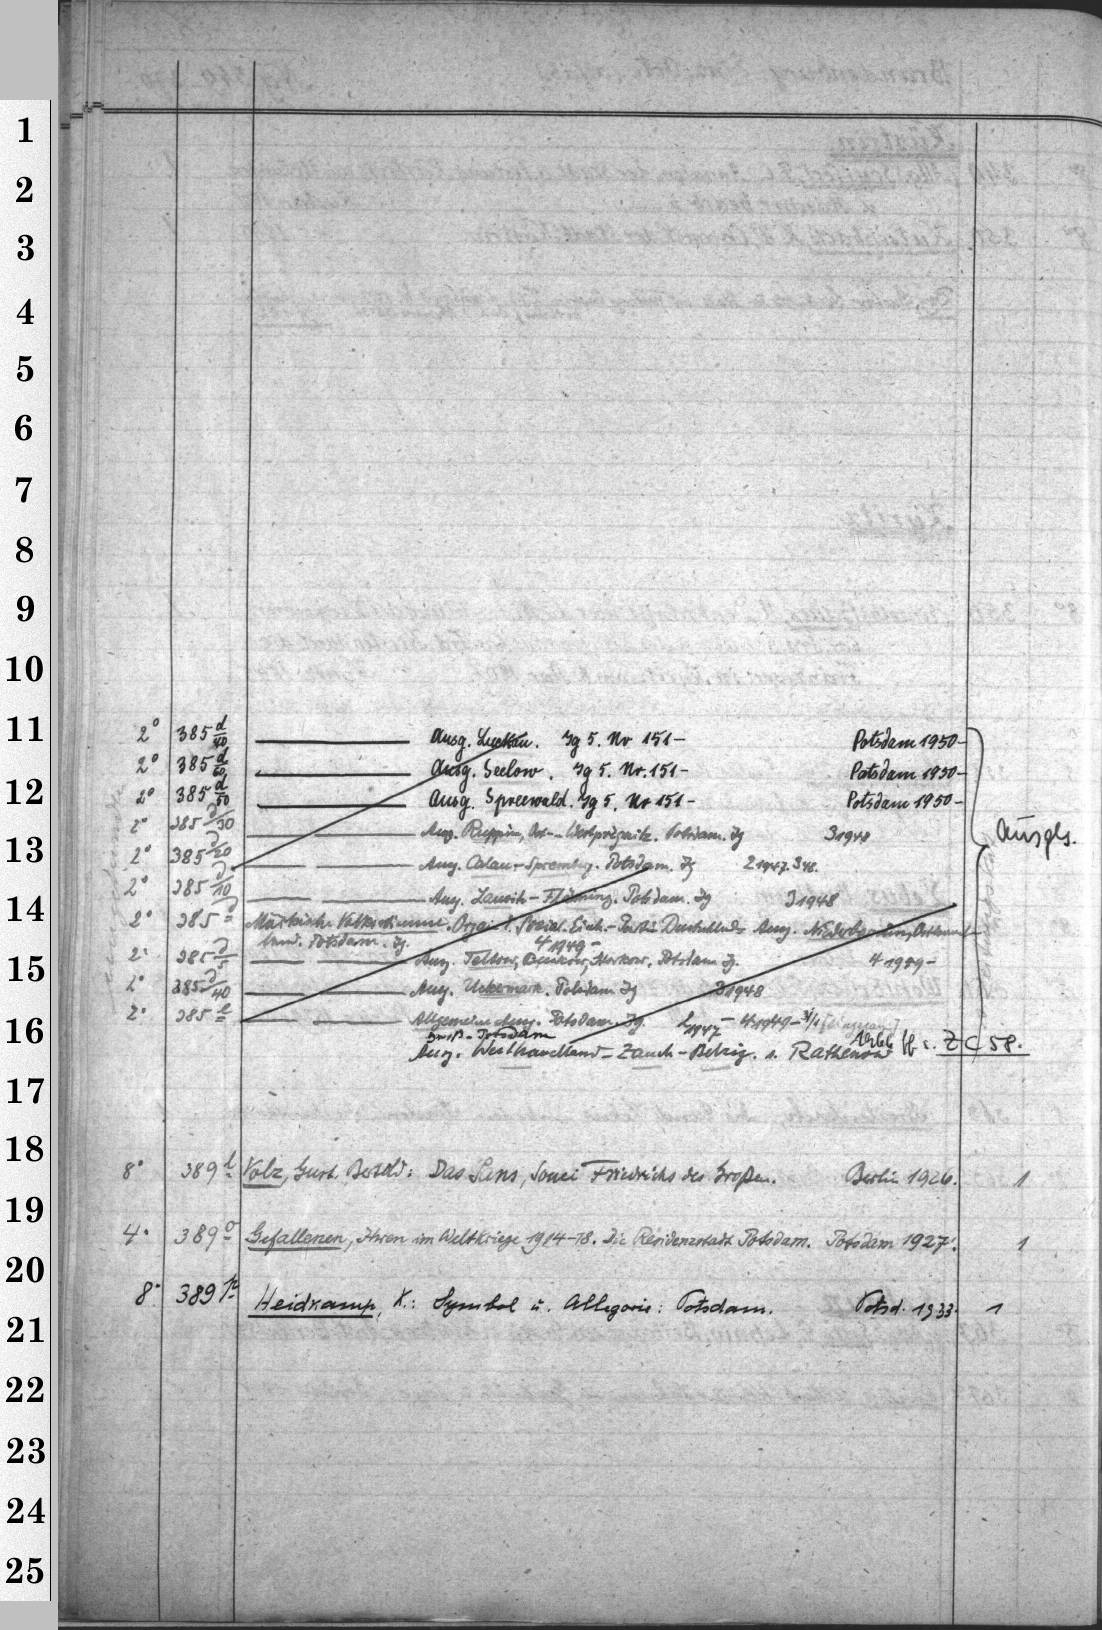 1
2
3
4
5
6
7
8
9
10
11
2° 385 d/40 Ausg. Luckau. Jg 5. Nr 151- Potsdam 1950-
2° 385 d/60 Ausg. Seelow. Jg 5. Nr. 151- Potsdam 1950-
12
2° 385 d/50 Ausg. Spreewald. Jg 5. Nr 151- Potsdam 1950-
2° 385 d/30 Ausg. Ruppin, Ost- Westprignitz. Potsdam. Jg 3 1948
Ausgls.
13
2° 385 d/20 Ausg. Calau-Spremberg. Potsdam. Jg 2 1947. 3 48.
2° 385 d/10 Ausg. Lausitz-Fläming. Potsdam. Jg 3 1948
14
2° 385 d Märkische Volksstimme. Organ d. Sozial. Einh.-Partei Deutschlands Ausg. Niederbarnim,
land. Potsdam. Jg. 4 1949-
15
2° 385 d/5 Ausg. Teltow, Beeskow, Storkow. Potsdam Jg. 4 1949-
2° 385 d/40 Ausg. Uckermark. Potsdam Jg 3 1948
16
2° 385 e Allgemeine Ausg. Potsdam. Jg. 2 1947- 4. 1949-
Potsdam
Ausg. Westhavelland-Zauch-Belzig. u. Rathenow ff s. ZC 58.
17
18
8° 389 l Volz, Gust. Berthold: Das Sans, Souci Friedrichs des Großen. Berlin 1926. 1
19
4° 389 o Gefallenen, Ihren im Weltkriege 1914-18. Die Residenzstadt Potsdam. Potsdam 1927. 1
20
8° 389 p Heidkamp, X.: Symbol u. Allegorie: Potsdam. Potsd. 1933. 1
21
22
23
24
25